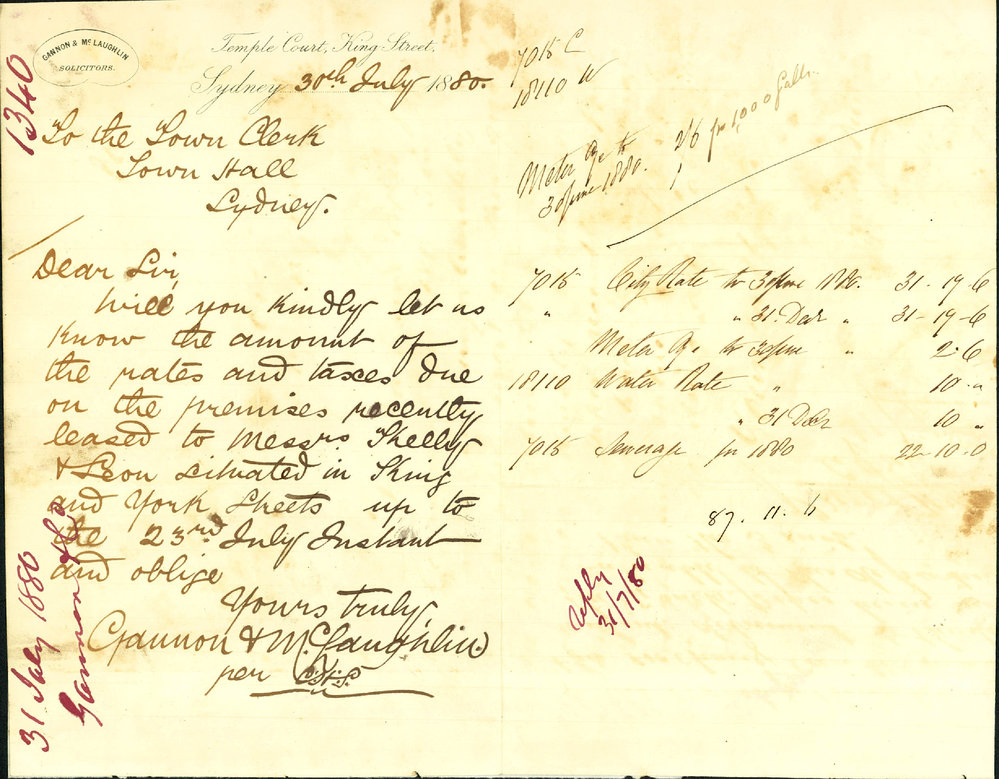 GANNON & McLAUGHLIN
SOLICITORS.
1340
Temple Court, King Street,
Sydney 30th July 1880.
To the Town Clerk
Town Hall
Sydney.
Dear Sir,
Will you kindly let us
know the amount of
the rates and taxes due
on the premises recently
leased to Messrs Kelly
& Leon situated in King
and York Streets up to
the 23rd July Instant
and oblige
Yours truly
Gannon & McLaughlin
per
31 July 1880
Gannon & Co
7015 C
18110 W
Meter Ge to 2/6 per 1,000 Galls.
30 June 1880.
7015 City Rate to 30 June 1880. 31-19-6
" " 31 Decr " 31-19-6
Meter Ge to 30 June " 2-6
18110 Water Rate " 10 - "
" 31 Decr 10 "
7015 Sewerage for 1880 22-10-0
87. 11. 6
Reply
31/7/80